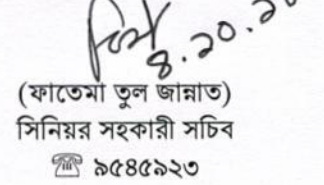 ৪.১০.২০
(ফাতেমা তুল জান্নাত)
সিনিয়র সহকারী সচিব
☎ ৯৫৪৫৯২৩